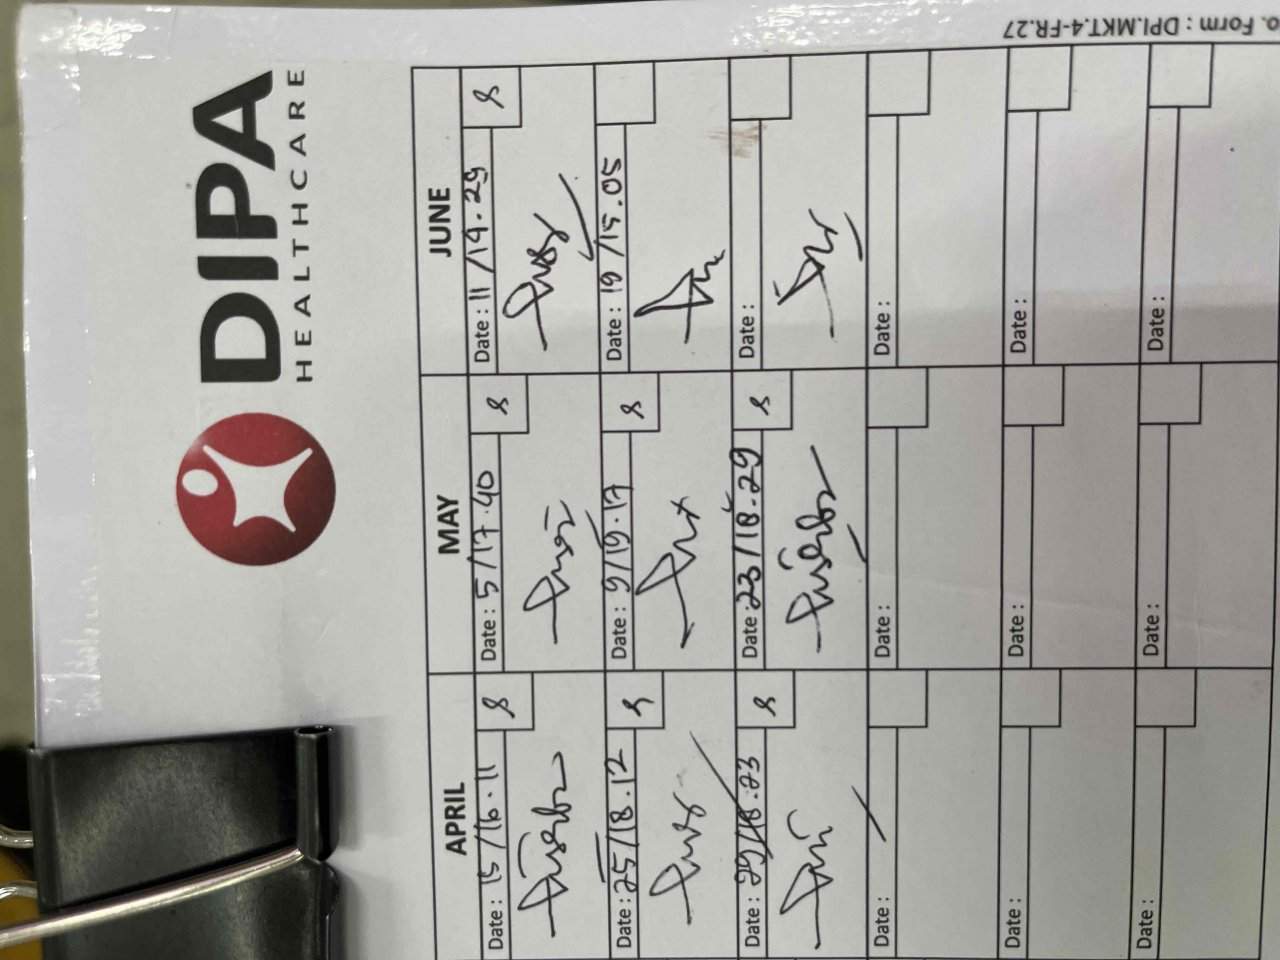 No. Form : DPI.MKT.4-FR.27
DIPA
HEALTHCARE
APRIL MAY JUNE
Date : 15/16.11 8 Date : 5/17.40 8 Date : 11/19.29 8
Date : 25/18.12 8 Date : 9/19.17 8 Date : 19/15.05
Date : 29/18.23 8 Date : 23/18.29 8 Date :
Date : Date : Date :
Date : Date : Date :
Date : Date : Date :